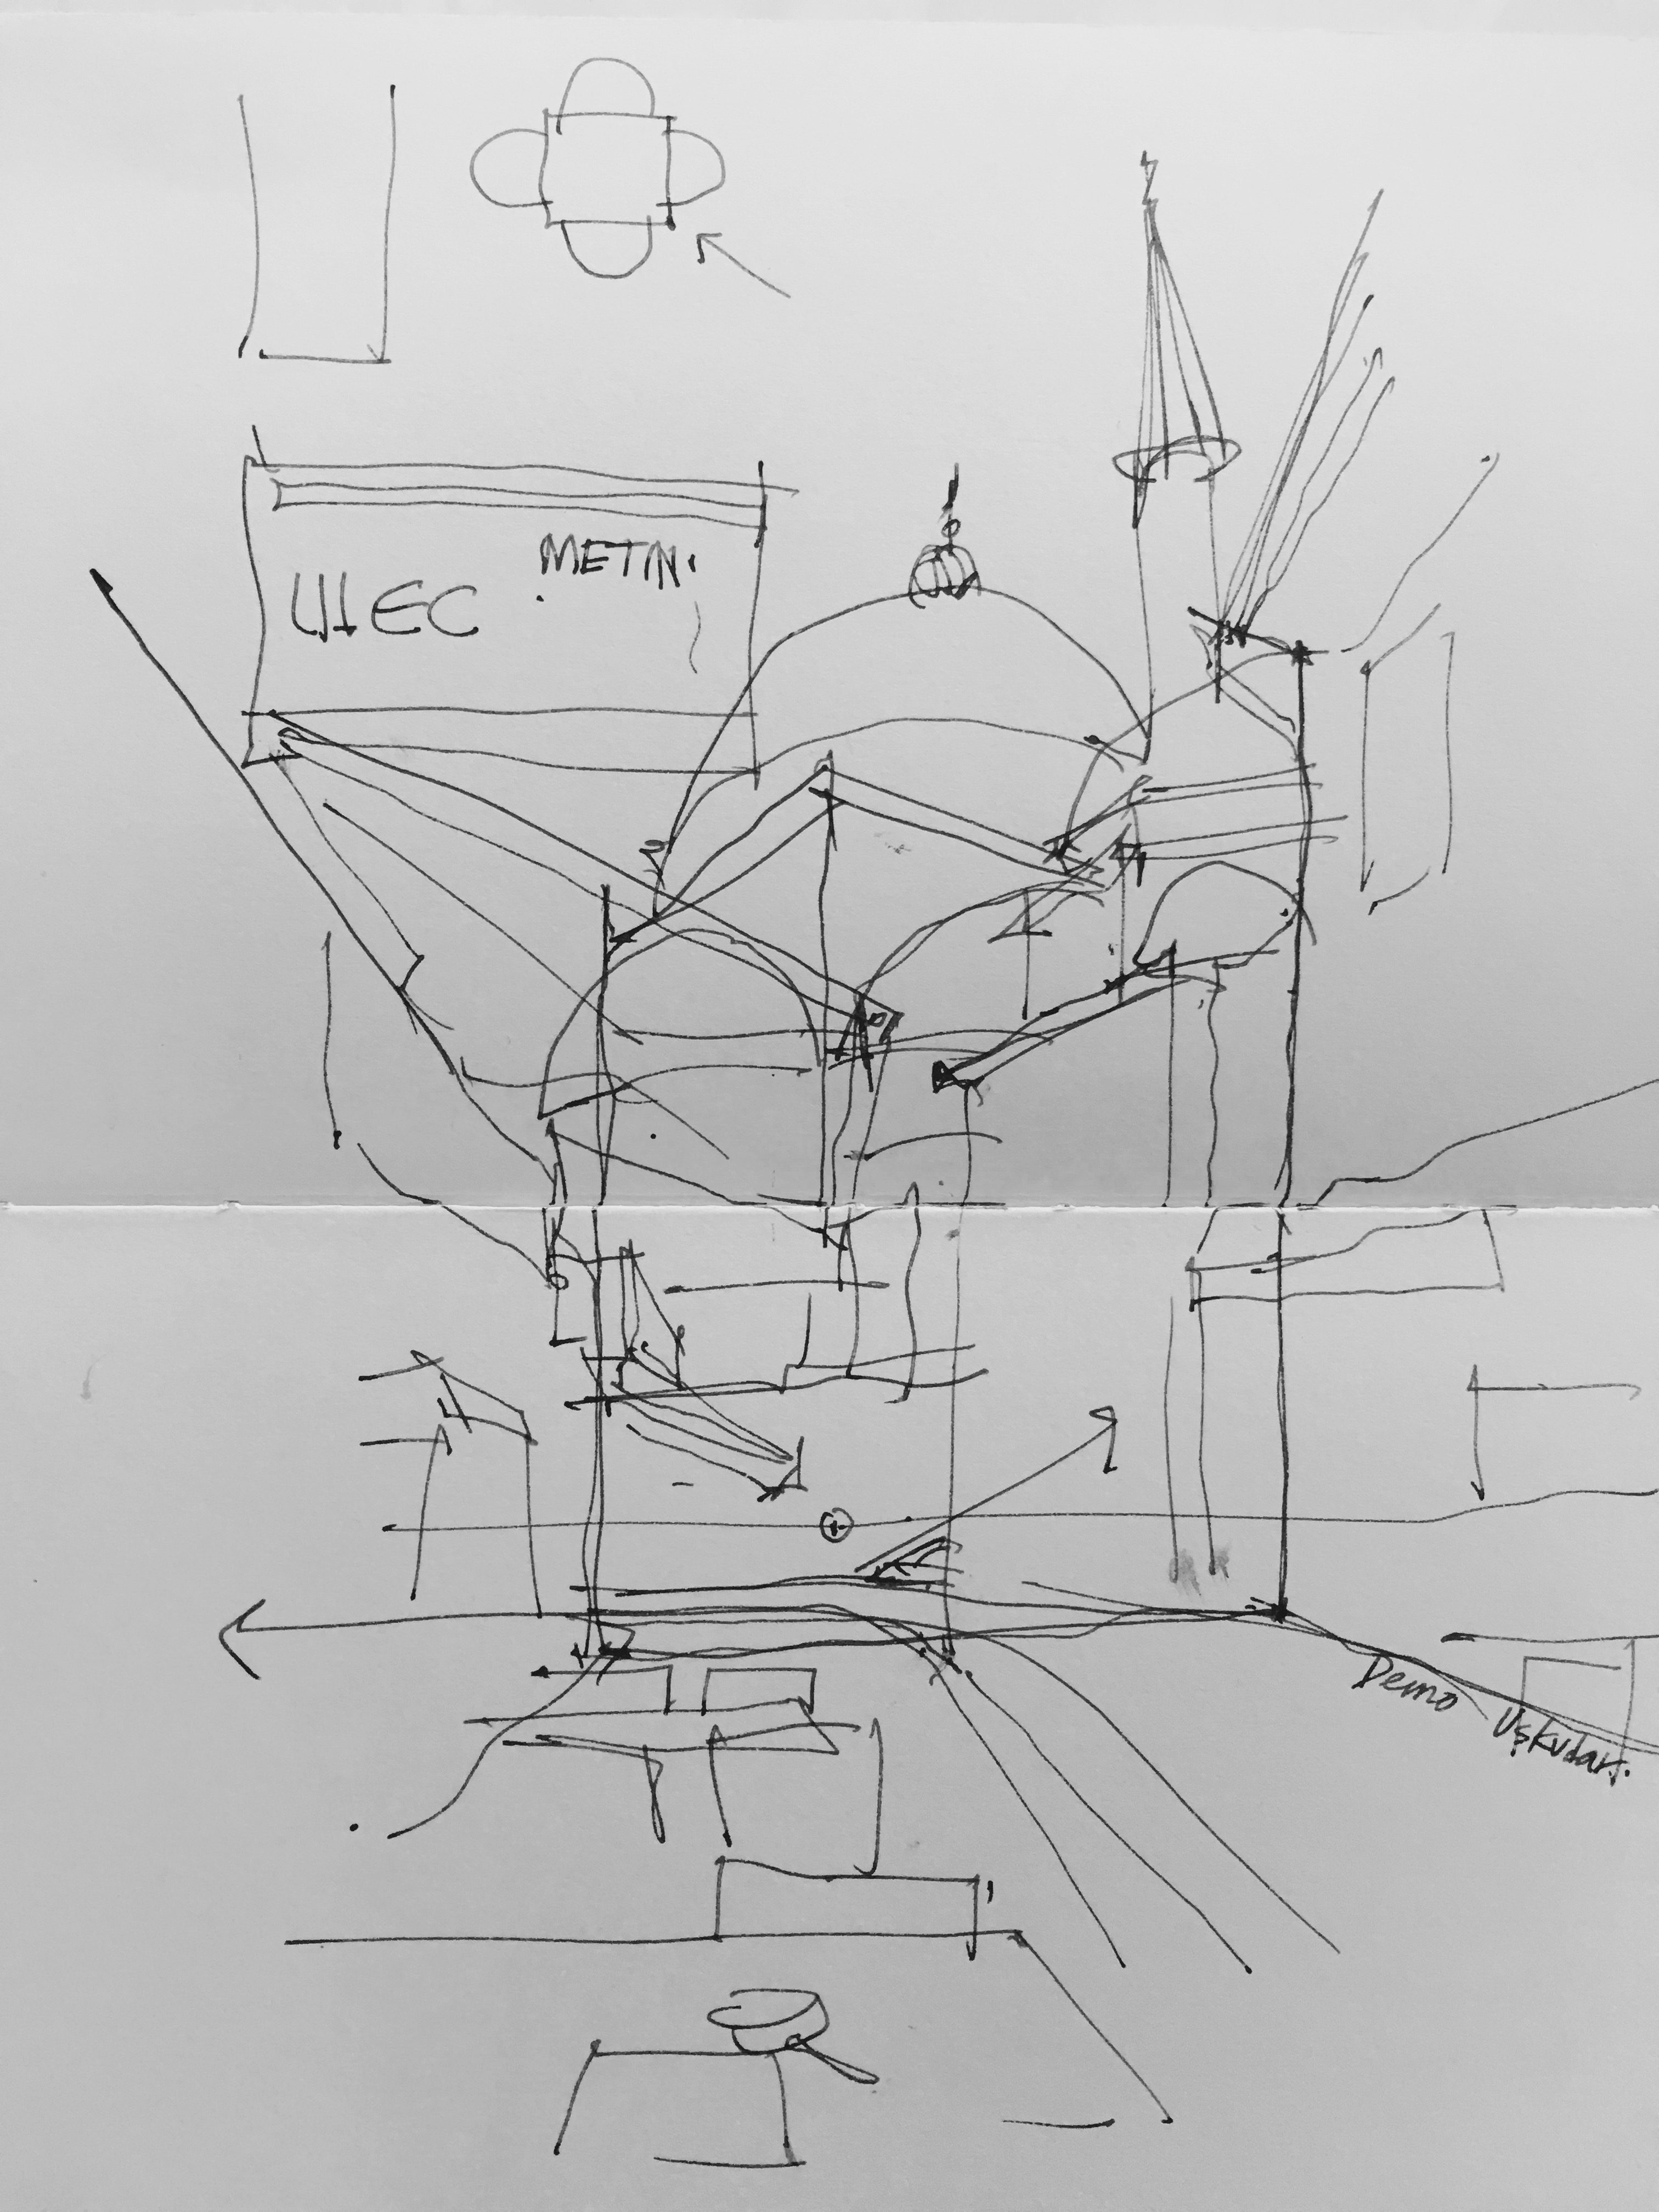 METIN.
UIEC
Demo
Uşkudar.